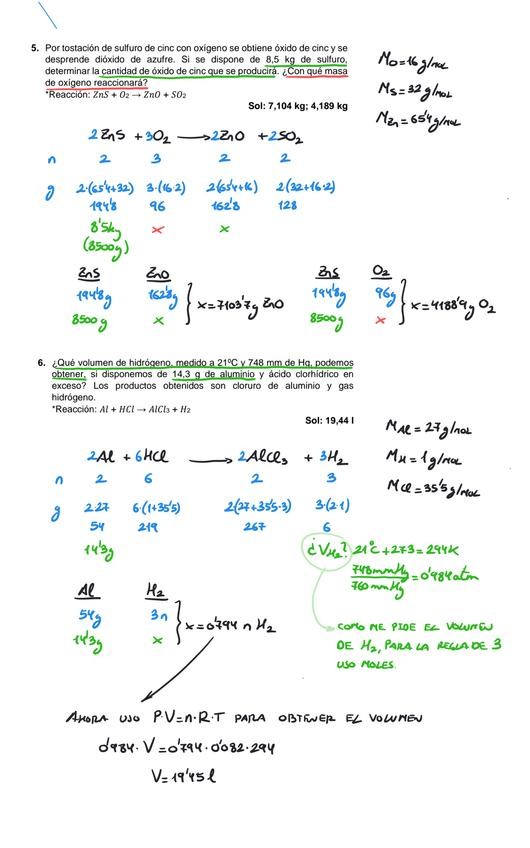 5. Por tostación de sulfuro de cinc con oxígeno se obtiene óxido de cinc y se
desprende dióxido de azufre. Si se dispone de 8,5 kg de sulfuro,
determinar la cantidad de óxido de cinc que se producirá. ¿Con qué masa
de oxígeno reaccionará?
*Reacción: ZnS + O₂ → ZnO + SO₂
Sol: 7,104 kg; 4,189 kg
Mo=16 g/mol
Ms=32 g/mol
Mzn=65'4 g/mol
2ZnS + 3O₂ → 2ZnO + 2SO₂
n 2 3 2 2
g 2·(65'4+32) 3·(16·2) 2(65'4+16) 2(32+16·2)
194'8 96 162'8 128
8'5kg x x
(8500g)
ZnS ZnO ZnS O₂
194'8g 162'8g x=7103'7g ZnO 194'8g 96g x=4188'9g O₂
8500g x 8500g x
6. ¿Qué volumen de hidrógeno, medido a 21ºC y 748 mm de Hg, podemos
obtener, si disponemos de 14,3 g de aluminio y ácido clorhídrico en
exceso? Los productos obtenidos son cloruro de aluminio y gas
hidrógeno.
*Reacción: Al + HCl → AlCl₃ + H₂
Sol: 19,44 l
MAl = 27g/mol
MH = 1g/mol
MCl = 35'5g/mol
2Al + 6HCl → 2AlCl₃ + 3H₂
n 2 6 2 3
g 2·27 6·(1+35'5) 2(27+35'5·3) 3·(2·1)
54 219 267 6
14'3g
¿VH₂? 21ºC+273=294K
748mmHg
760mmHg =0'984atm
Al H₂
54g 3n x=0'794 n H₂
14'3g x
COMO ME PIDE EL VOLUMEN
DE H₂, PARA LA REGLA DE 3
USO MOLES.
AHORA USO P·V=n·R·T PARA OBTENER EL VOLUMEN
0'984·V=0'794·0'082·294
V=19'45 l